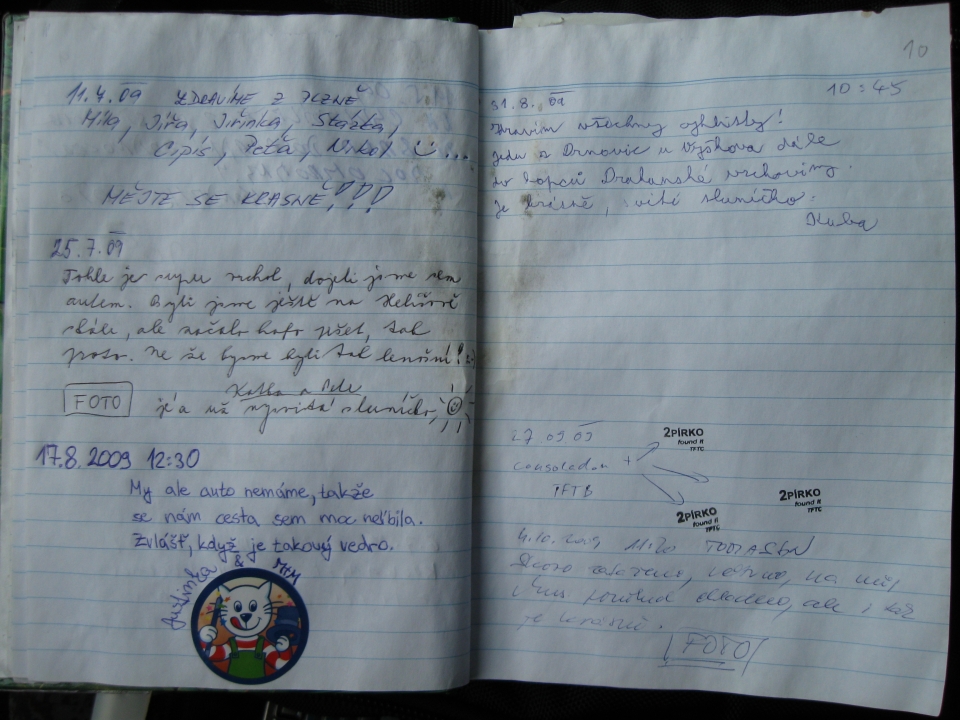 11.7.09 ZDRAVÍME Z PLZNĚ
Míla, Jířa, Jiřinka, Stázka,
Cipís, Peťa, Niko!
MĚJTE SE KRÁSNĚ!!!
25.7.09
Tohle je supr vrchol, dojeli jsme sem
autem. Byli jsme ještě na Helišově
skále, ale začalo hafo pršet, tak
proto. Ne že bysme byli tak lenošní!
Katka a Pete
FOTO
je a už vysvitá sluníčko,
17.8.2009 12:30
My ale auto nemáme, takže
se nám cesta sem moc nelíbila.
Zvlášť, když je takový vedro.
&
10
31.8.09 10:45
Zdravím všechny
jedu z Drnovic u Vyškova dále
do kopců Drahanské vrchoviny.
Je krásně, svítí sluníčko.
Kuba
27 09 09
+
TFTC
2PÍRKO
found it
TFTC
2PÍRKO
found it
TFTC
2PÍRKO
found it
TFTC
4.10.2009 11:20
Skoro zataženo, větrno, na můj
vkus poněkud chladno, ale i tak
je krásně.
FOTO